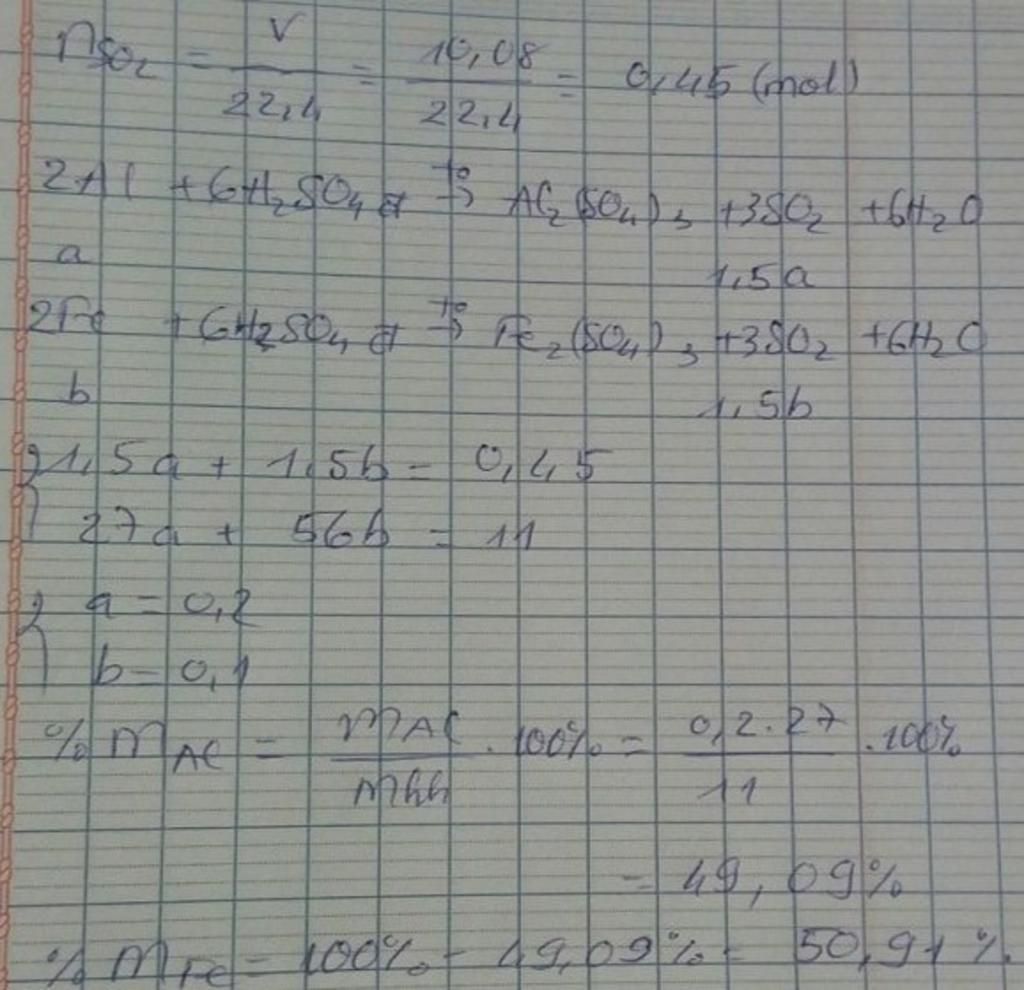 nSO₂ = V/22,4 = 10,08/22,4 = 0,45 (mol)
2Al + 6H₂SO₄ đ t° → Al₂(SO₄)₃ + 3SO₂ + 6H₂O
a 1,5a
2Fe + 6H₂SO₄ đ t° → Fe₂(SO₄)₃ + 3SO₂ + 6H₂O
b 1,5b
{ 1,5a + 1,5b = 0,45
27a + 56b = 11
{ a = 0,2
b = 0,1
% mAl = mAl/mhh . 100% = 0,2.27/11 . 100%
= 49,09%
% mFe = 100% - 49,09% = 50,91%.